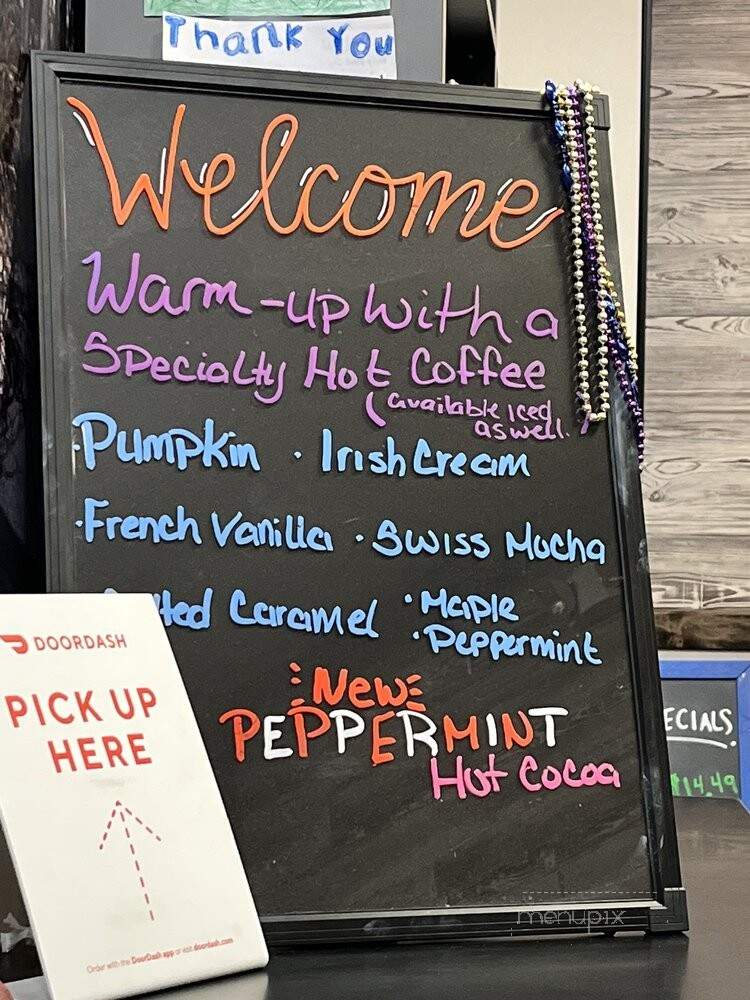 Thank You
Welcome
Warm-up with a
Specialty Hot Coffee
(available iced
as well.)
·Pumpkin · Irish Cream
·French Vanilla · Swiss Mocha
Caramel · Maple
· Peppermint
New
PEPPERMINT
Hot Cocoa
DOORDASH
PICK UP
HERE
Order with the DoorDash app or visit doordash.com
$14.49
menupix